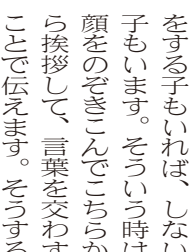 をする子もいれば、しない
子もいます。そういう時は
顔をのぞきこんでこちらか
ら挨拶して、言葉を交わす
ことで伝えます。そうする